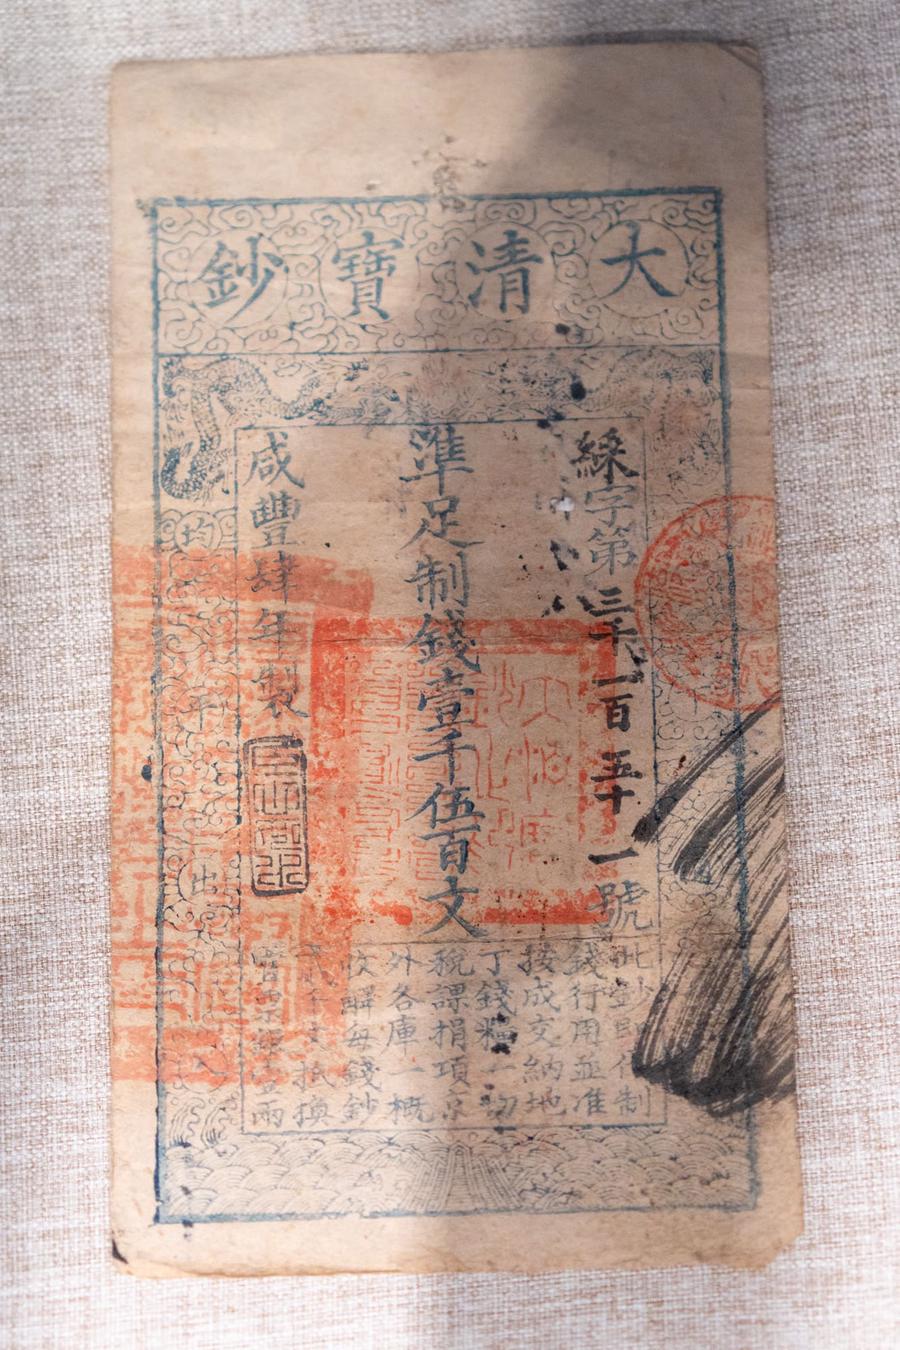 大清寶鈔
綵字第三千一百五十一號
準足制錢壹千伍百文
咸豐肆年製
此鈔即代制
錢行用並准
按成交納地
丁錢糧一切
稅課捐項京
外各庫一概
收解每錢鈔
貳千文抵換
官票銀壹兩
均平出入